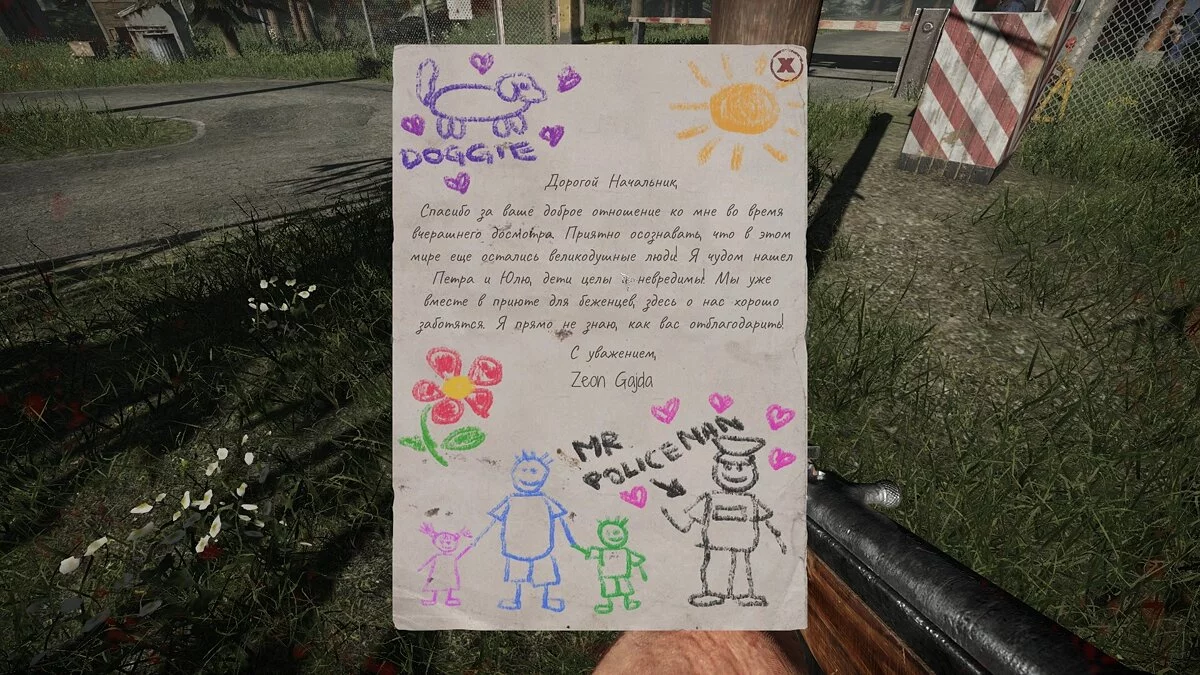 DOGGIE
Дорогой Начальник,
Спасибо за ваше доброе отношение ко мне во время
вчерашнего досмотра. Приятно осознавать, что в этом
мире еще остались великодушные люди! Я чудом нашел
Петра и Юлю, дети целы и невредимы! Мы уже
вместе в приюте для беженцев, здесь о нас хорошо
заботятся. Я прямо не знаю, как вас отблагодарить!
С уважением,
Zeon Gajda
MR
POLICENAN
X